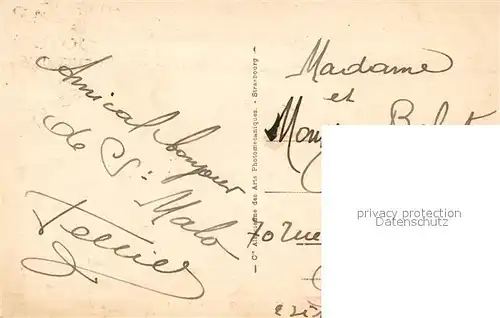 Amical bonjour
de St. Malo
Cie Alsacienne des Arts Photomécaniques. - Strasbourg
Madame
et
70 Rue
privacy protection
Datenschutz